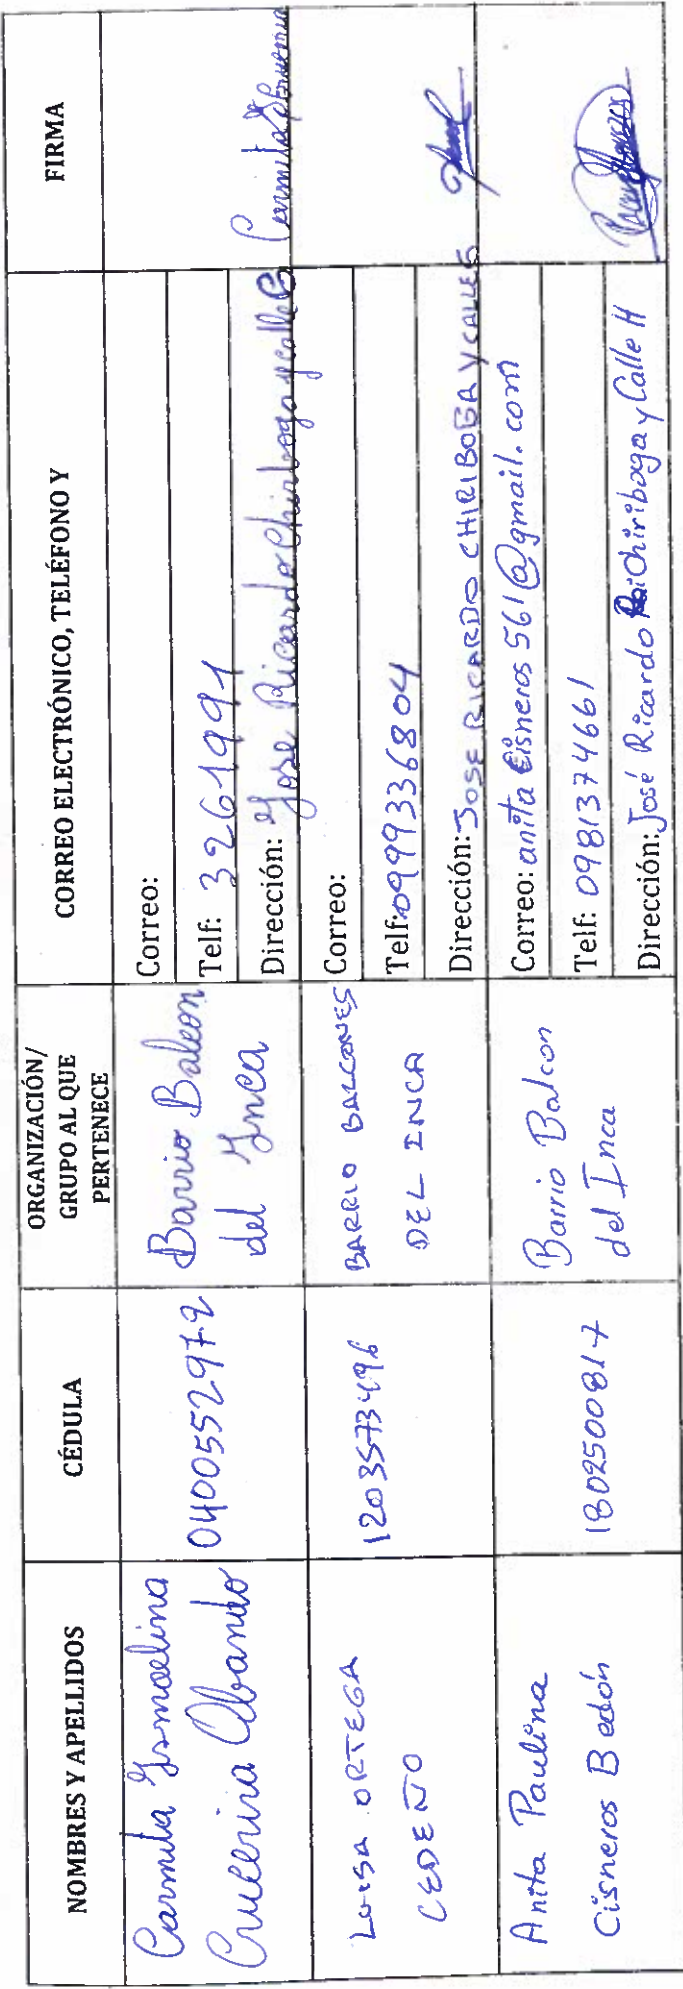 NOMBRES Y APELLIDOS
CÉDULA
ORGANIZACIÓN/
GRUPO AL QUE
PERTENECE
CORREO ELECTRÓNICO, TELÉFONO Y
FIRMA
Carmila Ismaelina
Obando
0400552972
Barrio Balcon
del Inca
Correo:
Telf: 3261991
Dirección: Jose Ricardo Chiriboga y calle
Carmila
LUISA ORTEGA
CEDEÑO
1203573496
BARRIO BALCONES
DEL INCA
Correo:
Telf: 0999336804
Dirección: JOSE RICARDO CHIRIBOGA Y CALLE
Anita Paulina
Cisneros Bedón
1802500817
Barrio Balcon
del Inca
Correo: anita cisneros 561@gmail.com
Telf: 0981374661
Dirección: José Ricardo Chiriboga y Calle H